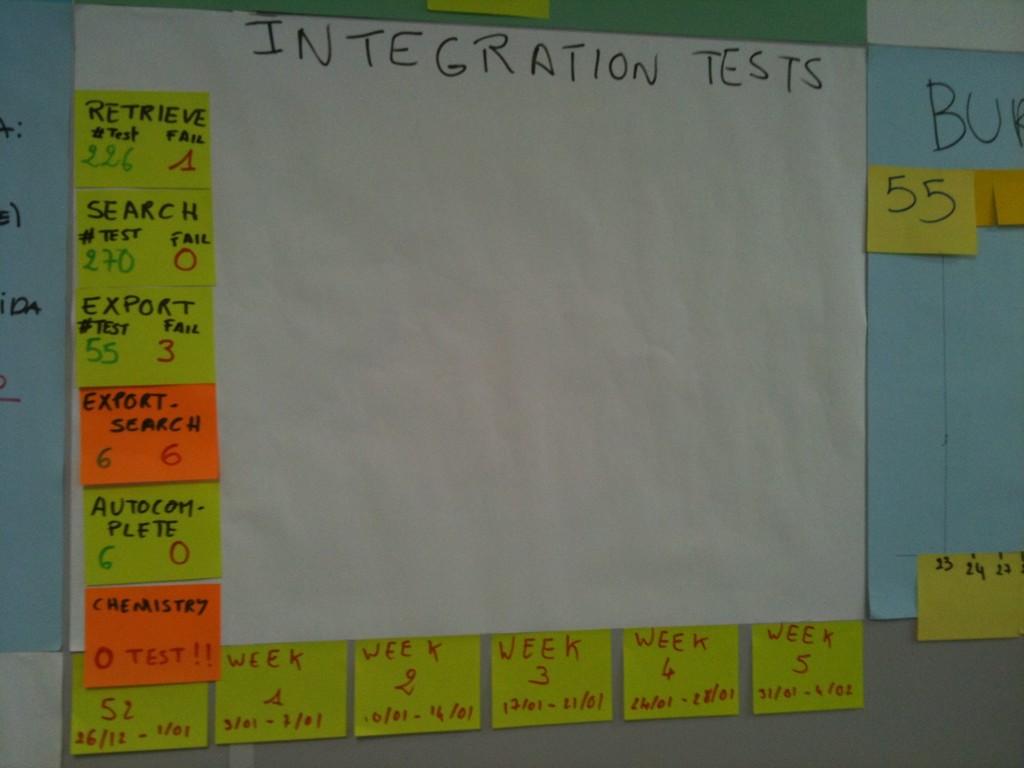 INTEGRATION TESTS
RETRIEVE
#Test FAIL
226 1
SEARCH
#TEST FAIL
270 0
EXPORT
#TEST FAIL
55 3
EXPORT-
SEARCH
6 6
AUTOCOM-
PLETE
6 0
CHEMISTRY
0 TEST!!
52
26/12 - 1/01
WEEK
1
3/01 - 7/01
WEEK
2
10/01 - 14/01
WEEK
3
17/01 - 21/01
WEEK
4
24/01 - 28/01
WEEK
5
31/01 - 4/02
BUR
55
23 24 27
A:
E)
iDA